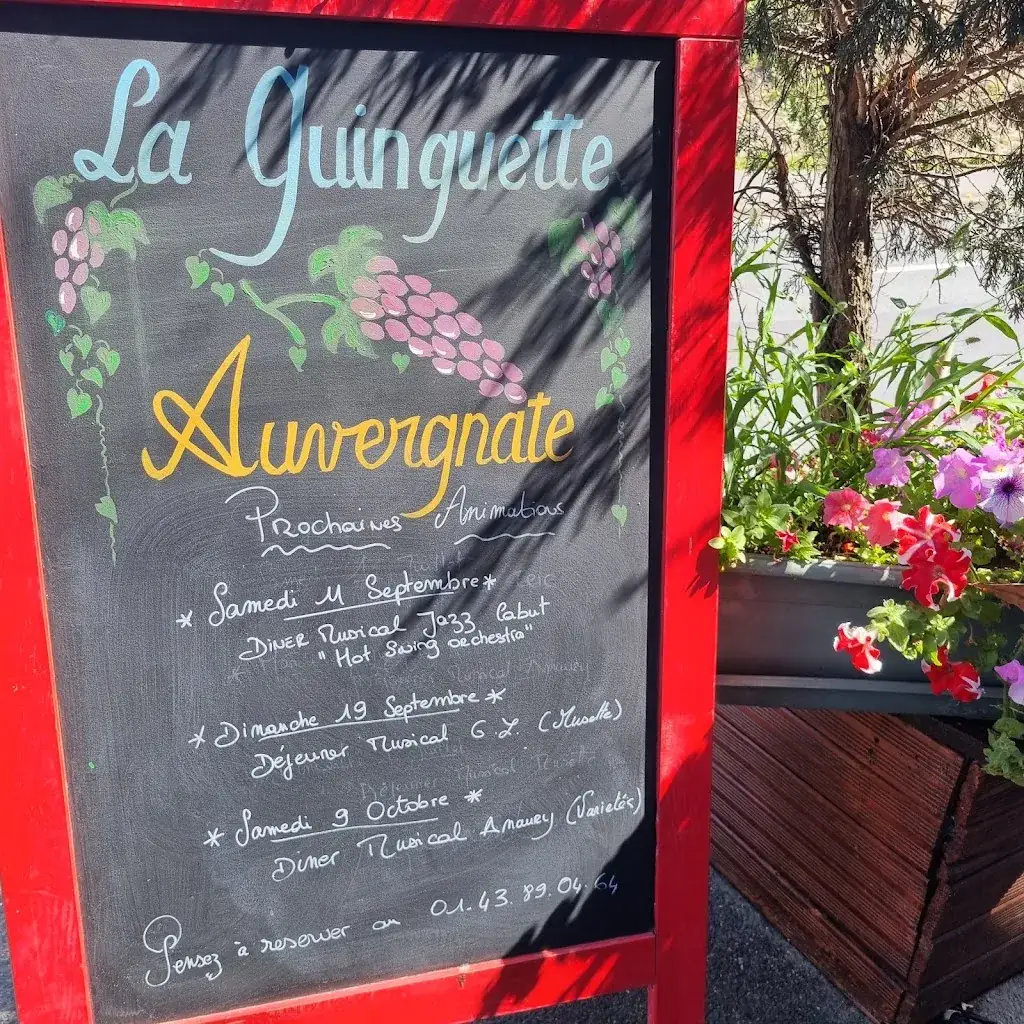 La Guinguette
Auvergnate
Prochaines Animations
* Samedi 11 Septembre *
Diner Musical Jazz Cabut
"Hot Swing orchestra"
* Dimanche 19 Septembre *
Déjeuner Musical G.L. (Musette)
* Samedi 9 Octobre *
Diner Musical Amaury (Varietés)
Pensez à reserver au 01.43.89.04.64